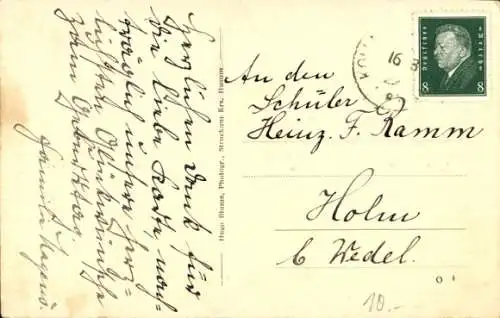 Herzlichen Dank für
die liebe Karte, nach-
träglich unsere herz-
lichsten Glückwünsche
zum Geburtstag.
Familie
Hugo Hamm, Photogr., Struckum Krs. Husum
16
Deutsches Reich
8 8
An den
Schüler
Heinz. F. Ramm
Holm
b Wedel.
10.-